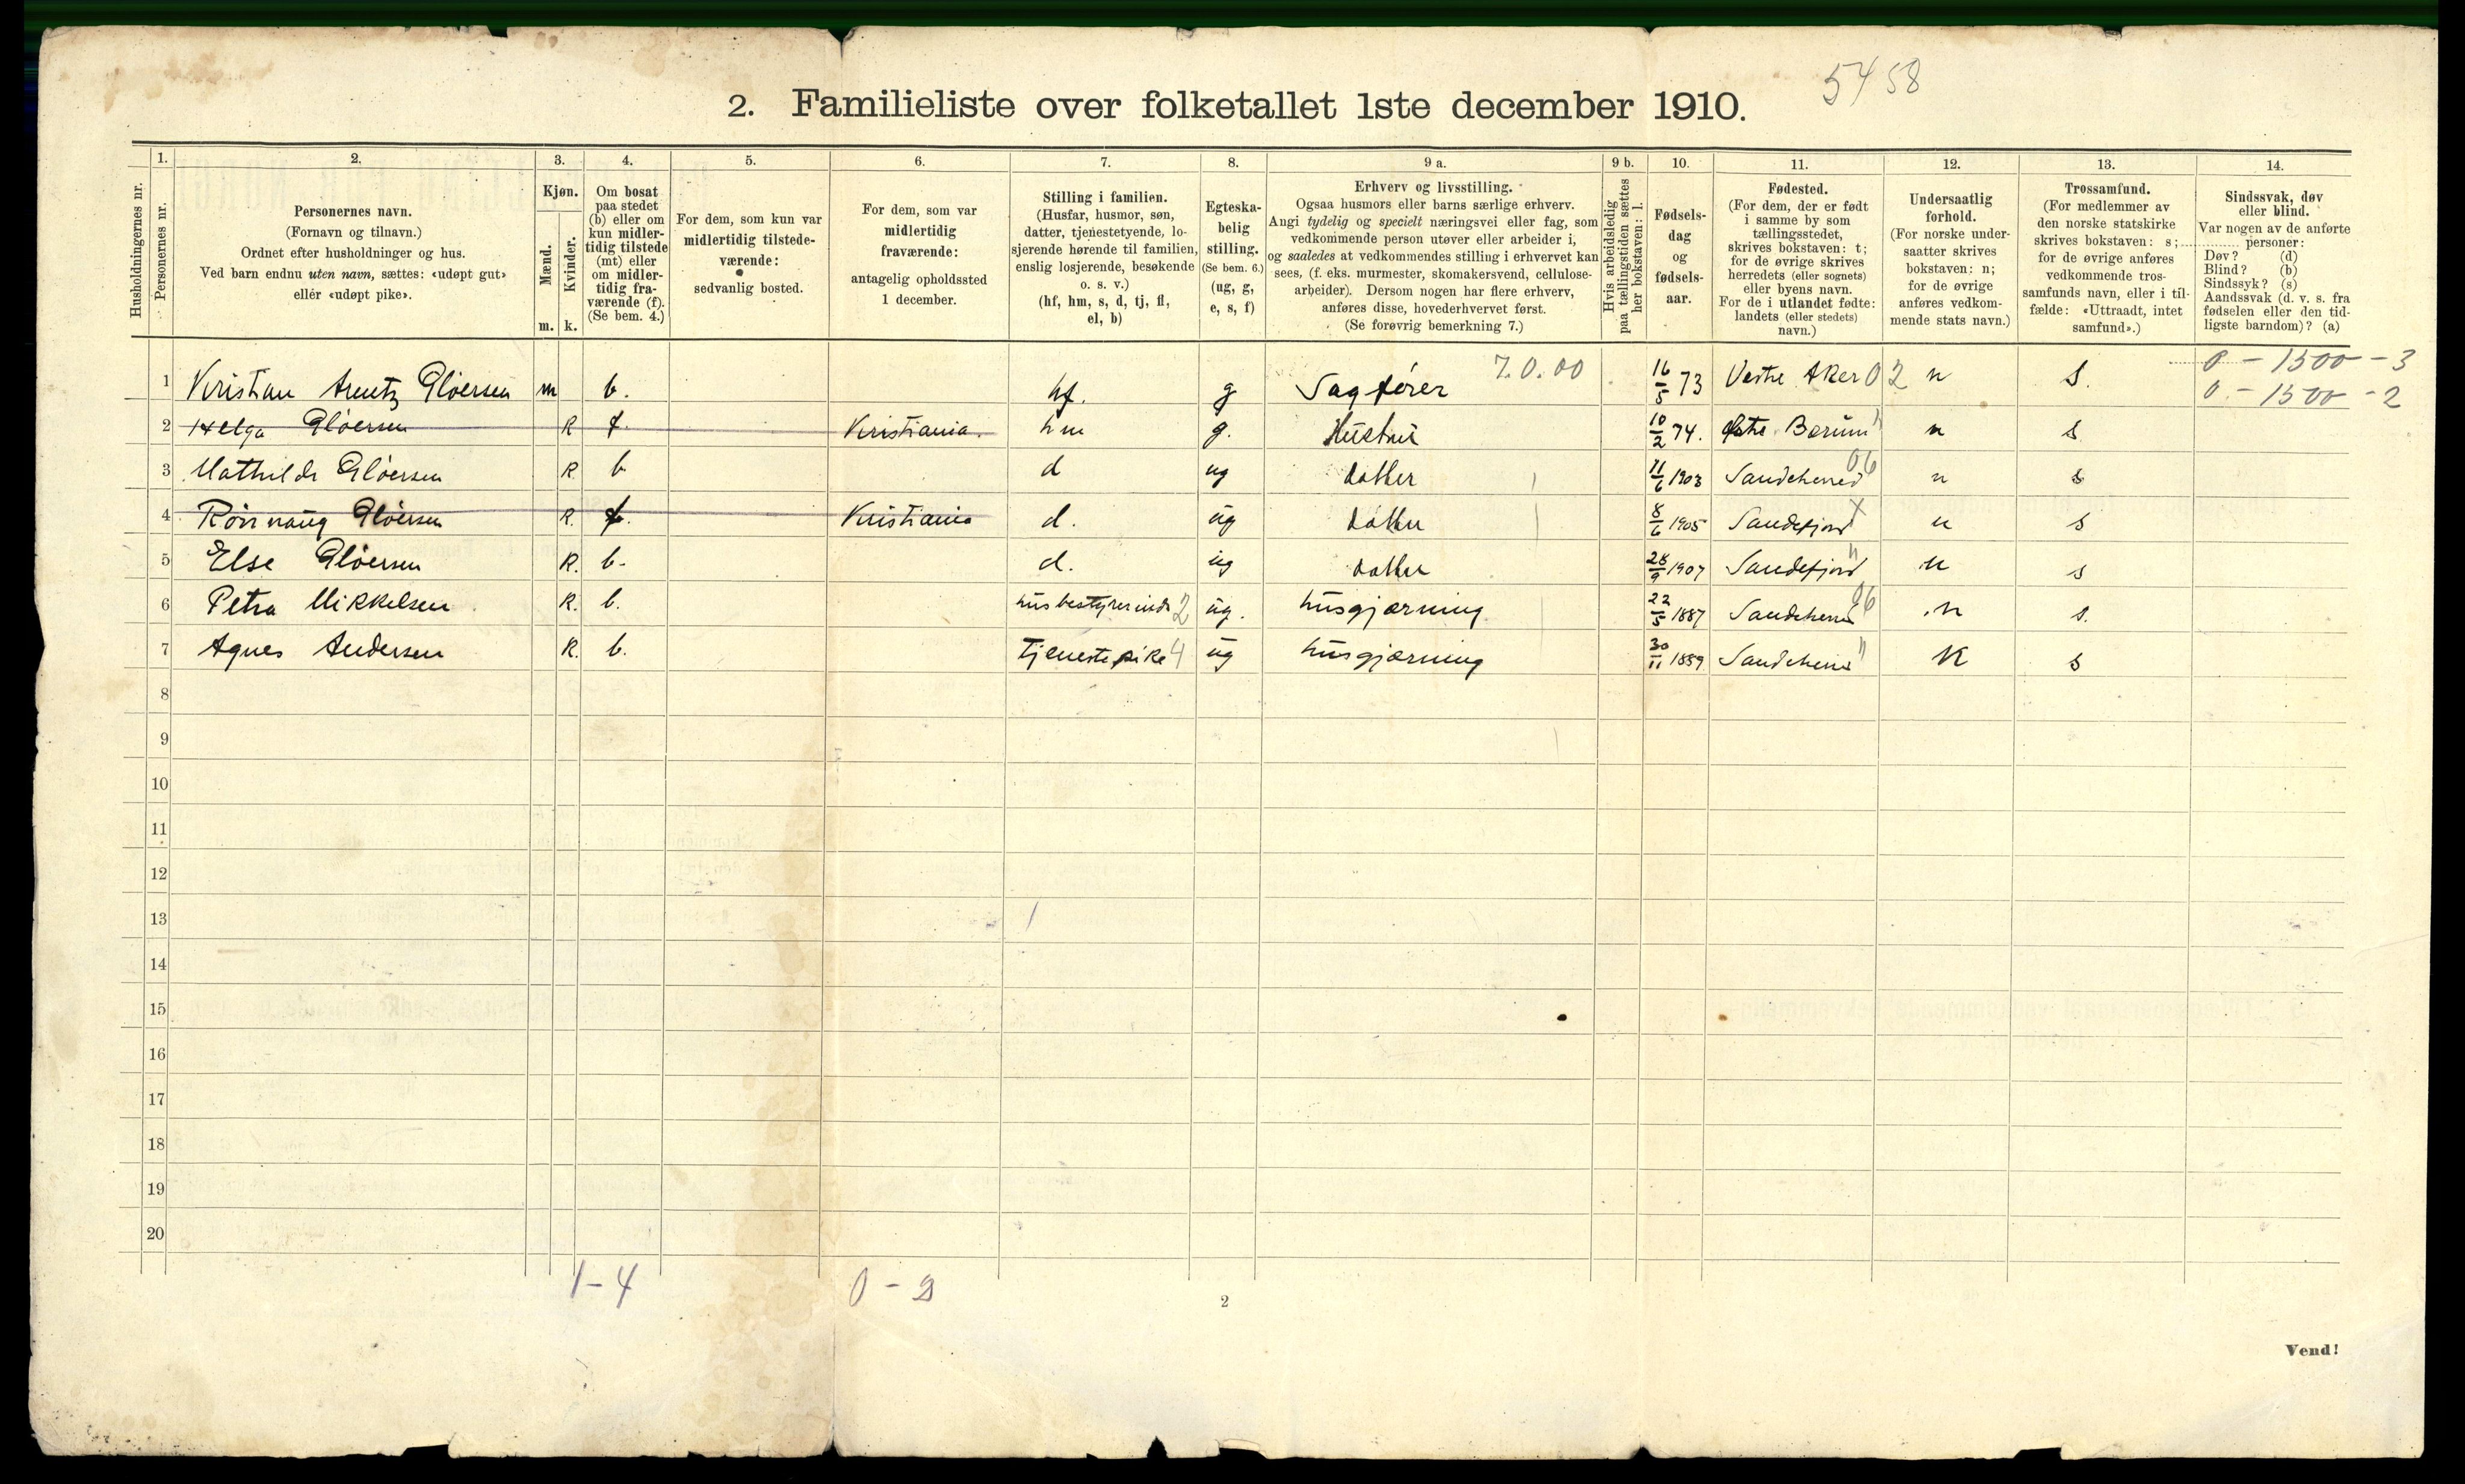 5458
2. Familieliste over folketallet 1ste december 1910.
Husholdningernes nr.
1.
Personernes nr.
2.
Personernes navn.
(Fornavn og tilnavn.)
Ordnet efter husholdninger og hus.
Ved barn endnu uten navn, sættes: «udøpt gut»
eller «udøpt pike».
3.
Kjøn.
Mænd.
Kvinder.
m. k.
4.
Om bosat
paa stedet
(b) eller om
kun midler-
tidig tilstede
(mt) eller
om midler-
tidig fra-
værende (f).
(Se bem. 4.)
5.
For dem, som kun var
midlertidig tilstede-
værende:
sedvanlig bosted.
6.
For dem, som var
midlertidig
fraværende:
antagelig opholdssted
1 december.
7.
Stilling i familien.
(Husfar, husmor, søn,
datter, tjenestetyende, lo-
sjerende hørende til familien,
enslig losjerende, besøkende
o. s. v.)
(hf, hm, s, d, tj, fl,
el, b)
8.
Egteska-
belig
stilling.
(Se bem. 6.)
(ug, g,
e, s, f)
9 a.
Erhverv og livsstilling.
Ogsaa husmors eller barns særlige erhverv.
Angi tydelig og specielt næringsvei eller fag, som
vedkommende person utøver eller arbeider i,
og saaledes at vedkommendes stilling i erhvervet kan
sees, (f. eks. murmester, skomakersvend, cellulose-
arbeider). Dersom nogen har flere erhverv,
anføres disse, hovederhvervet først.
(Se forøvrig bemerkning 7.)
9 b.
Hvis arbeidsledig
paa tællingstiden sættes
her bokstaven: l.
10.
Fødsels-
dag
og
fødsels-
aar.
11.
Fødested.
(For dem, der er født
i samme by som
tællingsstedet,
skrives bokstaven: t;
for de øvrige skrives
herredets (eller sognets)
eller byens navn.
For de i utlandet fødte:
landets (eller stedets)
navn.)
12.
Undersaatlig
forhold.
(For norske under-
saatter skrives
bokstaven: n;
for de øvrige
anføres vedkom-
mende stats navn.)
13.
Trossamfund.
(For medlemmer av
den norske statskirke
skrives bokstaven: s;
for de øvrige anføres
vedkommende tros-
samfunds navn, eller i til-
fælde: «Uttraadt, intet
samfund».)
14.
Sindssvak, døv
eller blind.
Var nogen av de anførte
personer:
Døv? (d)
Blind? (b)
Sindssyk? (s)
Aandssvak (d. v. s. fra
fødselen eller den tid-
ligste barndom)? (a)
1 Kristian Arentz Gløersen m b. hf. g Sagfører 7.0.00 16/5 73 Vestre Aker 02 n s. 0 - 1500 - 3
0 - 1500 - 2
2 Helga Gløersen K f. Kristiania. hm g. Hustru 10/2 74. Østre Bærum " n s
3 Mathilde Gløersen K b d ug datter 11/6 1903 Sandeherred 06 n s
4 Rønnaug Gløersen K. f. Kristiania d. ug datter 8/6 1905 Sandefjord X n s
5 Else Gløersen K. b. d. ug datter 28/9 1907 Sandefjord " n s
6 Petra Mikkelsen K. b. husbestyrerinde 2 ug. husgjærning 22/5 1887 Sandeherred 06 n s.
7 Agnes Andersen K. b. Tjenestepike 4 ug husgjærning 30/11 1889 Sandeherred " n s
8
9
10
11
12
13
14
15
16
17
18
19
20
1-4 0-2
2
Vend!